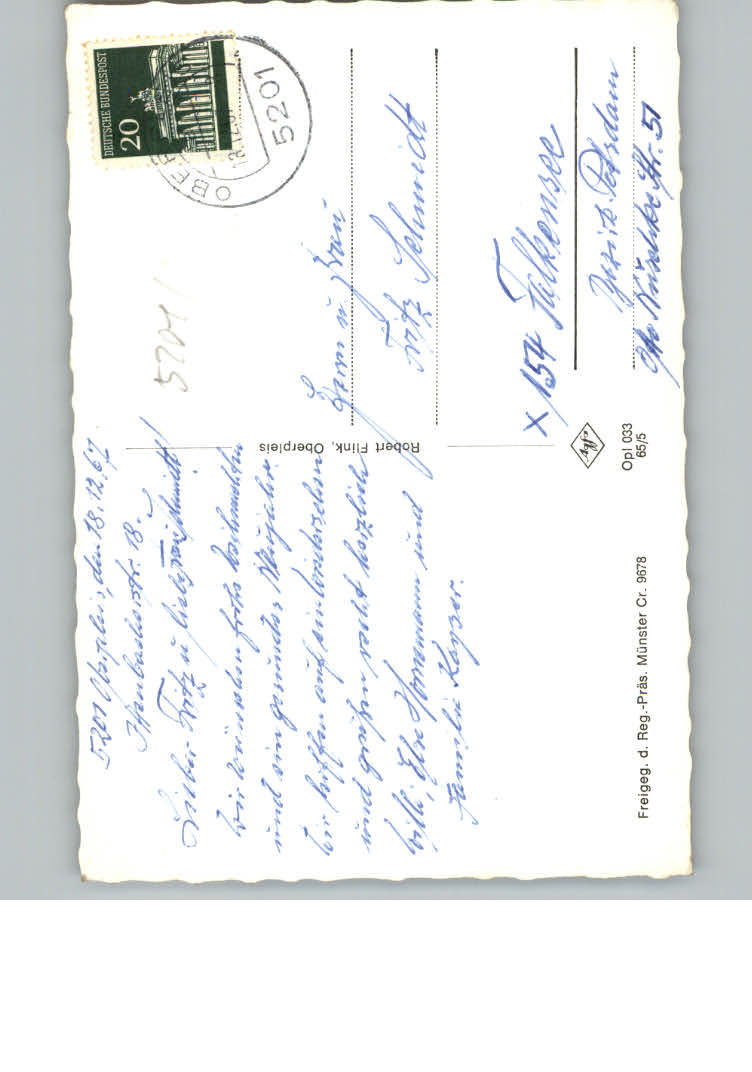 5201 Oberpleis, den 18.12.67.
Lieber Fritz u. liebe Frau Schmidt!
Wir wünschen frohe Weihnachten
und ein gesundes Neujahr.
Wir hoffen auf ein Wiedersehen
und grüßen recht herzlich
Willi, Else Hommann und
Familie Kayser.
Robert Flink, Oberpleis
DEUTSCHE BUNDESPOST
20
5201
5201
Herrn u. Frau
Fritz Schmidt
X 154 Falkensee
Bezirk Potsdam
Otto Nuschke Str. 51
Agfa
Opl 033
65/5
Freigeg. d. Reg.-Präs. Münster Cr. 9678